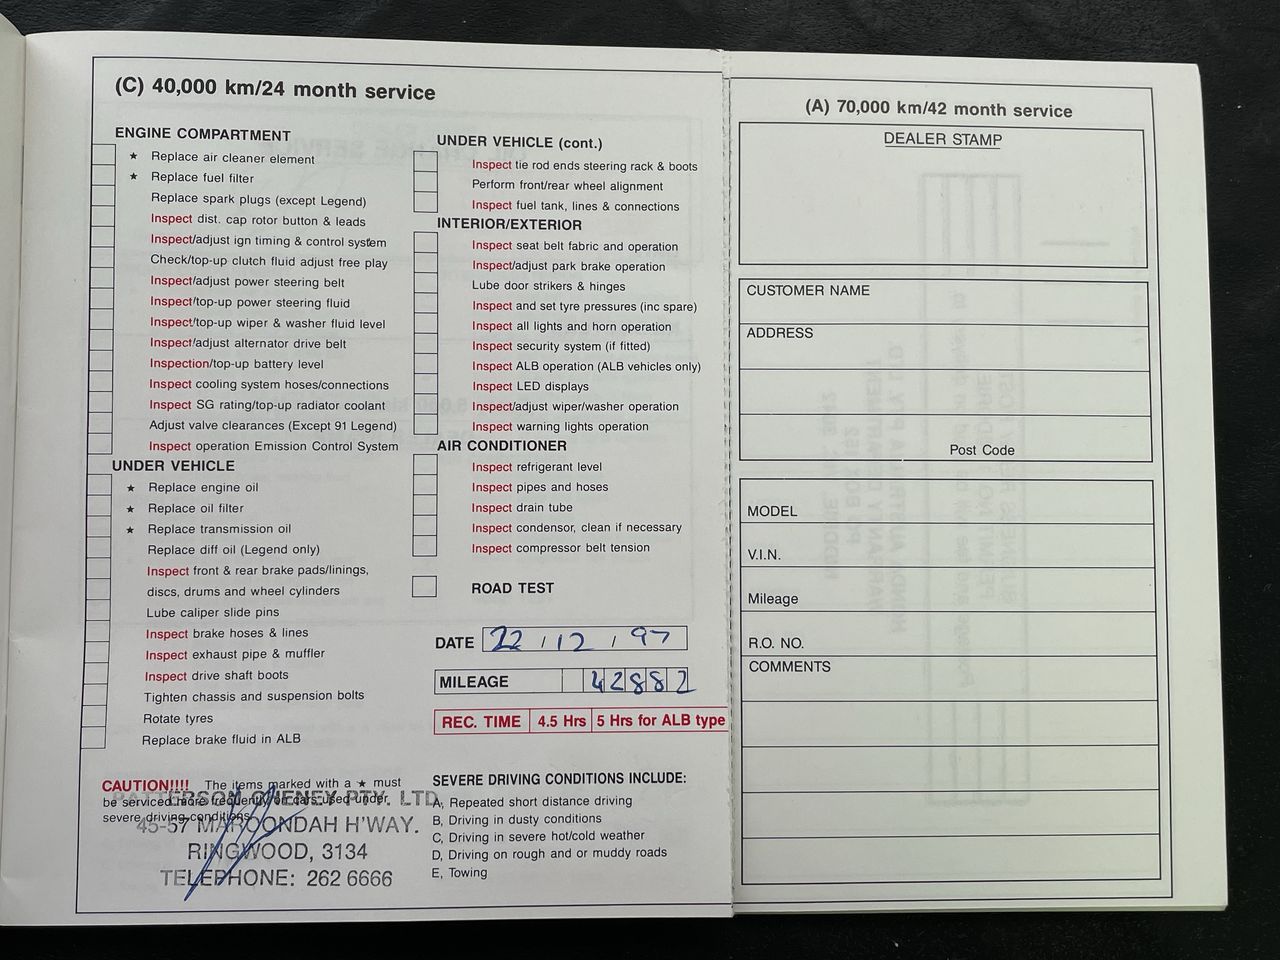 (C) 40,000 km/24 month service
ENGINE COMPARTMENT
★ Replace air cleaner element
★ Replace fuel filter
Replace spark plugs (except Legend)
Inspect dist. cap rotor button & leads
Inspect/adjust ign timing & control system
Check/top-up clutch fluid adjust free play
Inspect/adjust power steering belt
Inspect/top-up power steering fluid
Inspect/top-up wiper & washer fluid level
Inspect/adjust alternator drive belt
Inspection/top-up battery level
Inspect cooling system hoses/connections
Inspect SG rating/top-up radiator coolant
Adjust valve clearances (Except 91 Legend)
Inspect operation Emission Control System
UNDER VEHICLE
★ Replace engine oil
★ Replace oil filter
★ Replace transmission oil
Replace diff oil (Legend only)
Inspect front & rear brake pads/linings,
discs, drums and wheel cylinders
Lube caliper slide pins
Inspect brake hoses & lines
Inspect exhaust pipe & muffler
Inspect drive shaft boots
Tighten chassis and suspension bolts
Rotate tyres
Replace brake fluid in ALB
CAUTION!!!! The items marked with a ★ must
be serviced more frequently on cars used under
severe driving conditions
PATTERSON CHENEY PTY. LTD
45-57 MAROONDAH H'WAY.
RINGWOOD, 3134
TELEPHONE: 262 6666
UNDER VEHICLE (cont.)
Inspect tie rod ends steering rack & boots
Perform front/rear wheel alignment
Inspect fuel tank, lines & connections
INTERIOR/EXTERIOR
Inspect seat belt fabric and operation
Inspect/adjust park brake operation
Lube door strikers & hinges
Inspect and set tyre pressures (inc spare)
Inspect all lights and horn operation
Inspect security system (if fitted)
Inspect ALB operation (ALB vehicles only)
Inspect LED displays
Inspect/adjust wiper/washer operation
Inspect warning lights operation
AIR CONDITIONER
Inspect refrigerant level
Inspect pipes and hoses
Inspect drain tube
Inspect condensor, clean if necessary
Inspect compressor belt tension
ROAD TEST
DATE 22 / 12 / 97
MILEAGE 42882
REC. TIME 4.5 Hrs 5 Hrs for ALB type
SEVERE DRIVING CONDITIONS INCLUDE:
A, Repeated short distance driving
B, Driving in dusty conditions
C, Driving in severe hot/cold weather
D, Driving on rough and or muddy roads
E, Towing
(A) 70,000 km/42 month service
DEALER STAMP
CUSTOMER NAME
ADDRESS
Post Code
MODEL
V.I.N.
Mileage
R.O. NO.
COMMENTS